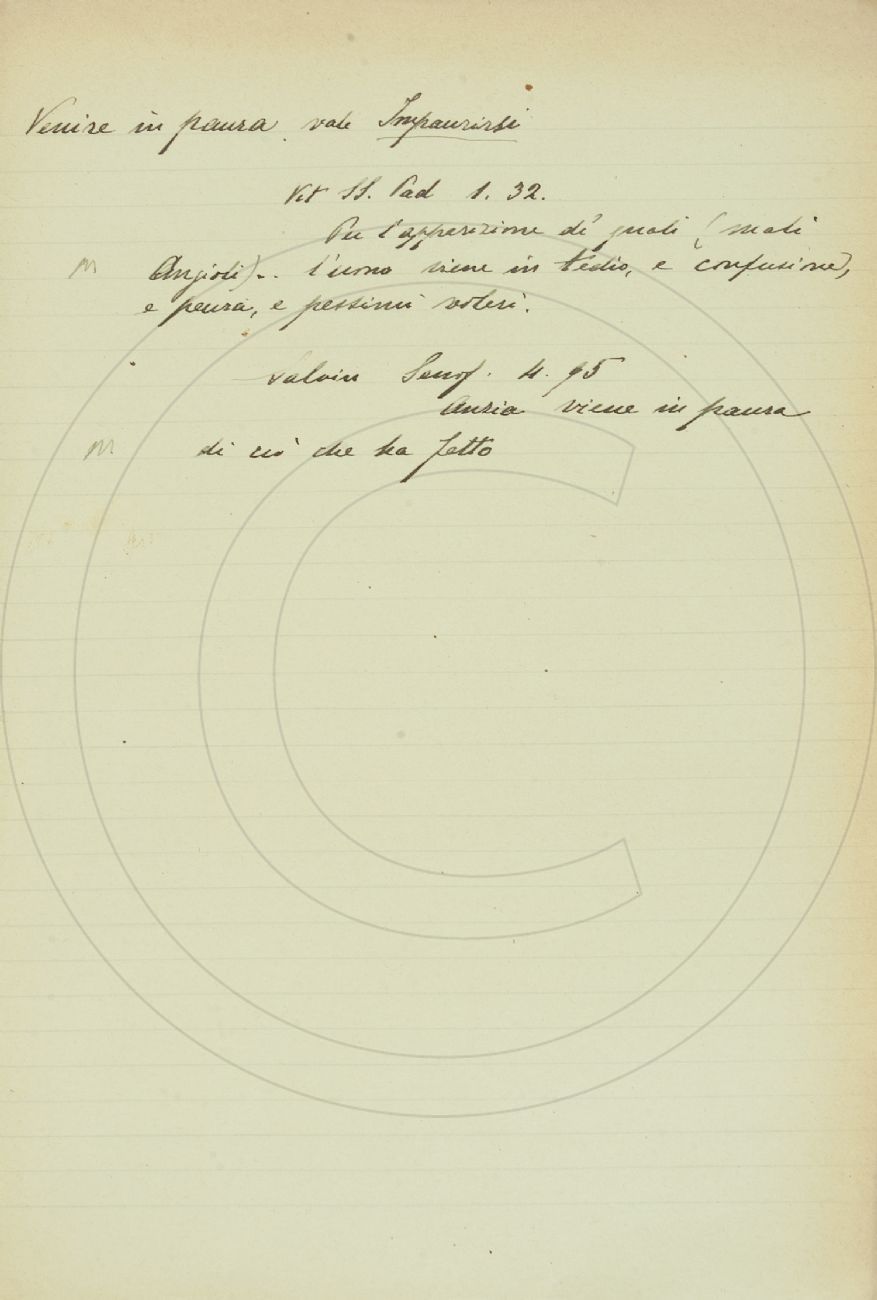 Venire in paura vale Impaurirsi
Vit SS. Pad 1. 32.
Per l'apparizione de' quali (mali
M Angioli).. l'uomo viene in tedio, e confusione,
e paura, e pessimi voleri.
Salvin Senof. 4. 95
Anzia viene in paura
M di ciò che ha fatto